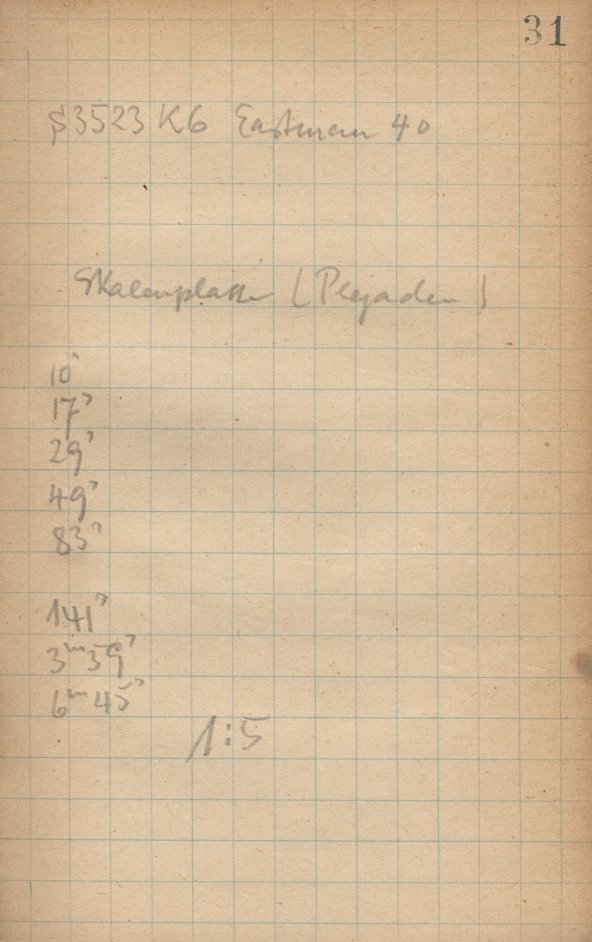 31
S3523 K6 Eastman 40
Skalenplatte (Plejaden)
10ˢ
17ˢ
29ˢ
49ˢ
83ˢ
141ˢ
3ᵐ59ˢ
6ᵐ45ˢ
1:5